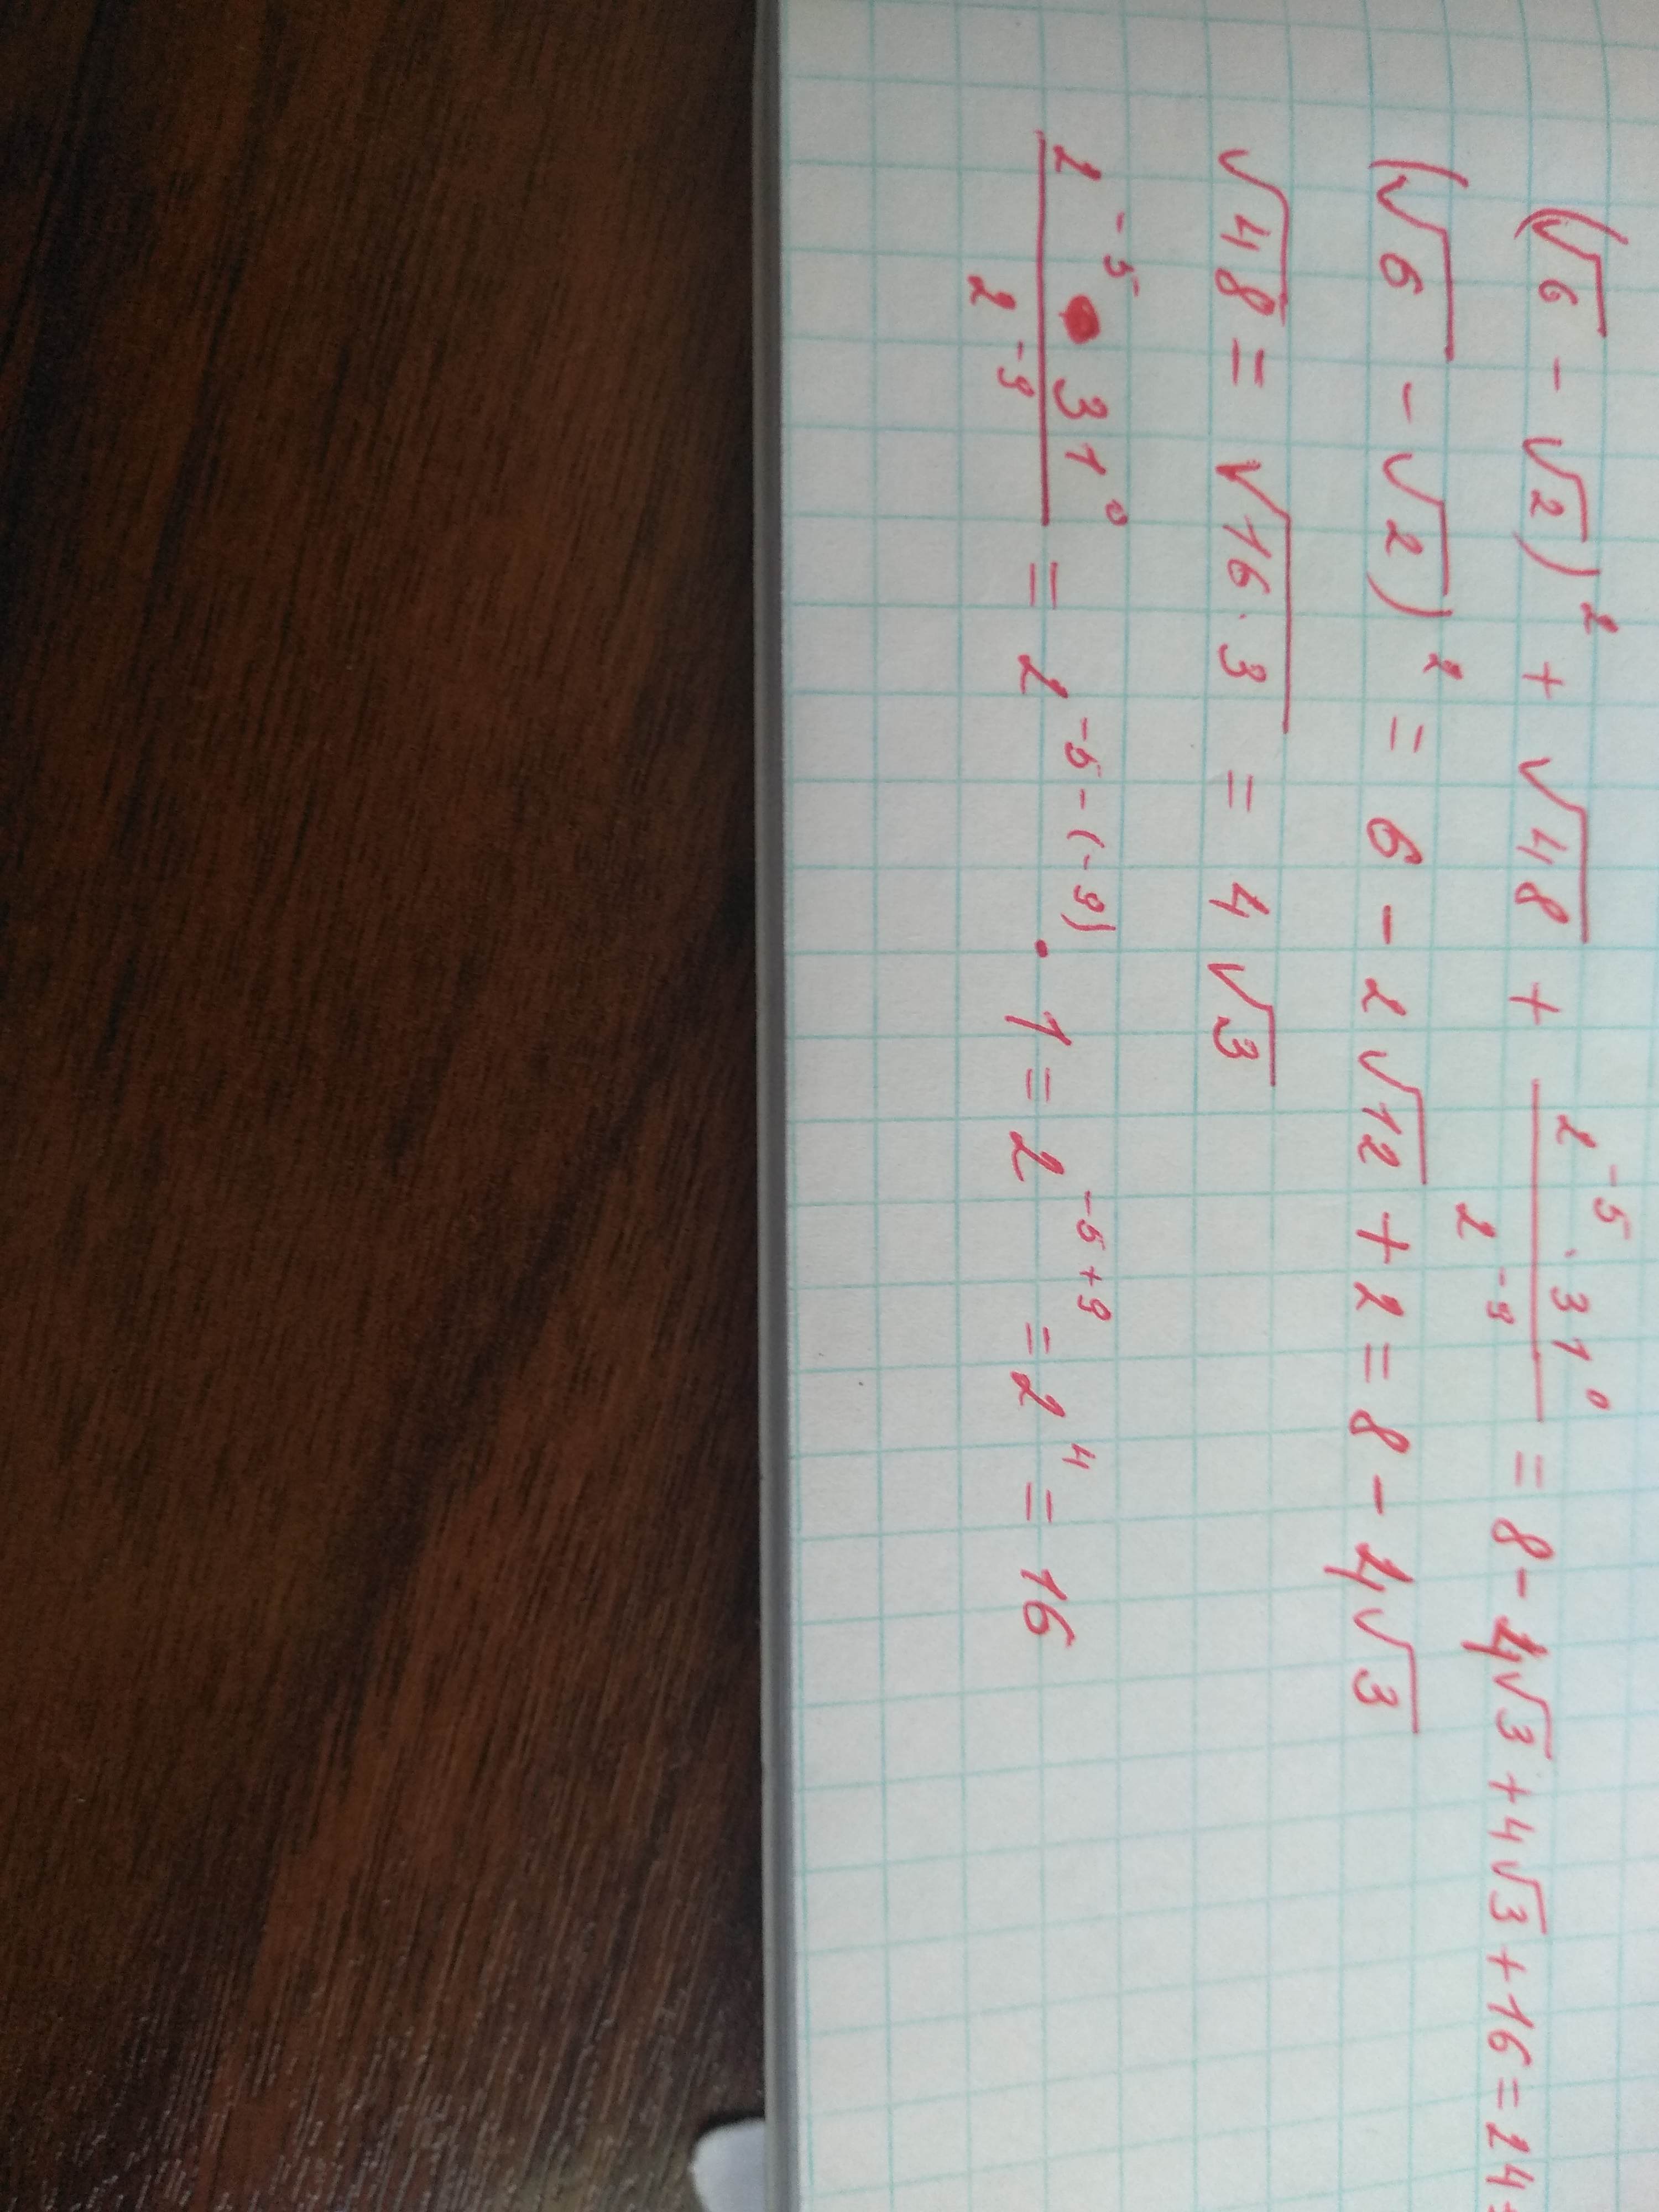 (√6 - √2)² + √48 + (2⁻⁵ · 31⁰)/2⁻⁹ = 8 - 4√3 + 4√3 + 16 = 24
(√6 - √2)² = 6 - 2√12 + 2 = 8 - 4√3
√48 = √(16 · 3) = 4√3
(2⁻⁵ · 31⁰)/2⁻⁹ = 2⁻⁵⁻⁽⁻⁹⁾ · 1 = 2⁻⁵⁺⁹ = 2⁴ = 16